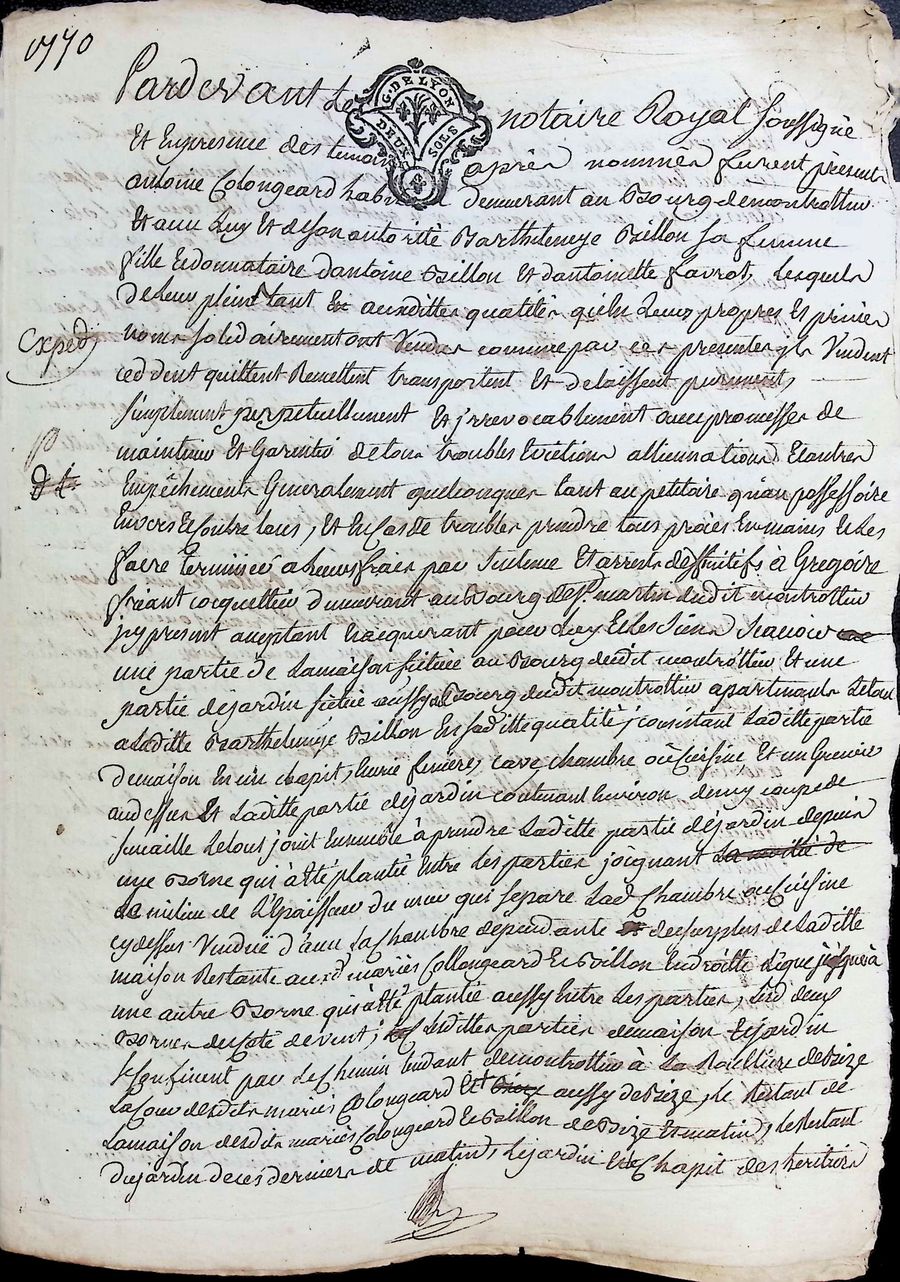 1770
G. DE LYON
DEUX SOLS
Pardevant Le notaire Royal soussigné
Et En presence des temoins après nommés furent présents
antoine Colongeard demeurant au Bourg de montrottier
Et avec luy Et de son autorité Barthelemye Billon sa femme
fille Et donnataire d'antoine Billon Et d'antoinette favrot, lesquels
de leur plein tant Et auxdittes qualités qu'En Leurs propres Et privés
noms solidairement ont Vendus comme par ces presentes ils Vendent
Expéd
ceddent quittent Remettent transportent Et delaissent purement,
simplement perpetuellement Et jrrevocablement avec promesses de
maintenir Et Garentir de tous troubles Evictions allienations Et autres
Empêchements Generalement quelconques tant au petitoire qu'au possessoire
Envers Et Contre tous, Et En Cas de troubles prendre tous procès En mains Et les
faire terminer a Leurs frais par Sentence Et arrests deffinitifs à Grégoire
friant cocquettier demeurant au Bourg de St. martin dudit montrottier
jcy present acceptant Et acquerant pour Luy Et Les Siens Scavoir
une partie de La maison scituée au Bourg dudit montrottier Et une
partie de jardin scitué aussy au Bourg dudit montrottier apartenants Le tout
a Laditte Barthelemye Billon En saditte qualité j consistant Laditte partie
de maison En un chapit, Ecurie feniere, cave, chambre où Cuisine Et un Grenier
au dessus Et Laditte partie de jardin contenant Environ demy coupe de
semaille Le tout joint Ensemble à prendre Laditte partie de jardin depuis
une Borne qui à été plantée Entre Les parties joignant La moitié de
Le milieu de L'Epaisseur du mur qui separe Lad. Chambre où Cuisine
cy dessus Vendue d'avec La Chambre dependante du surplus de Laditte
maison Restante auxd. mariés Collongeard Et Billon En droitte Ligne jusques à
une autre Borne qui à été plantée aussy Entre Les parties, Lesd. deux
Bornes du Coté de vent; Lesdittes parties de maison Et jardin
se Confinent par Le Chemin tendant de montrottier à La de Bize
La Cour desdits mariés Colongeard Et aussy de Bize, Le Restant de
La maison desdits mariés Colongeard Et Billon de Bize Et matin, Le Restant
du jardin de ces derniers de matin, Le jardin Et Chapit des heritiers